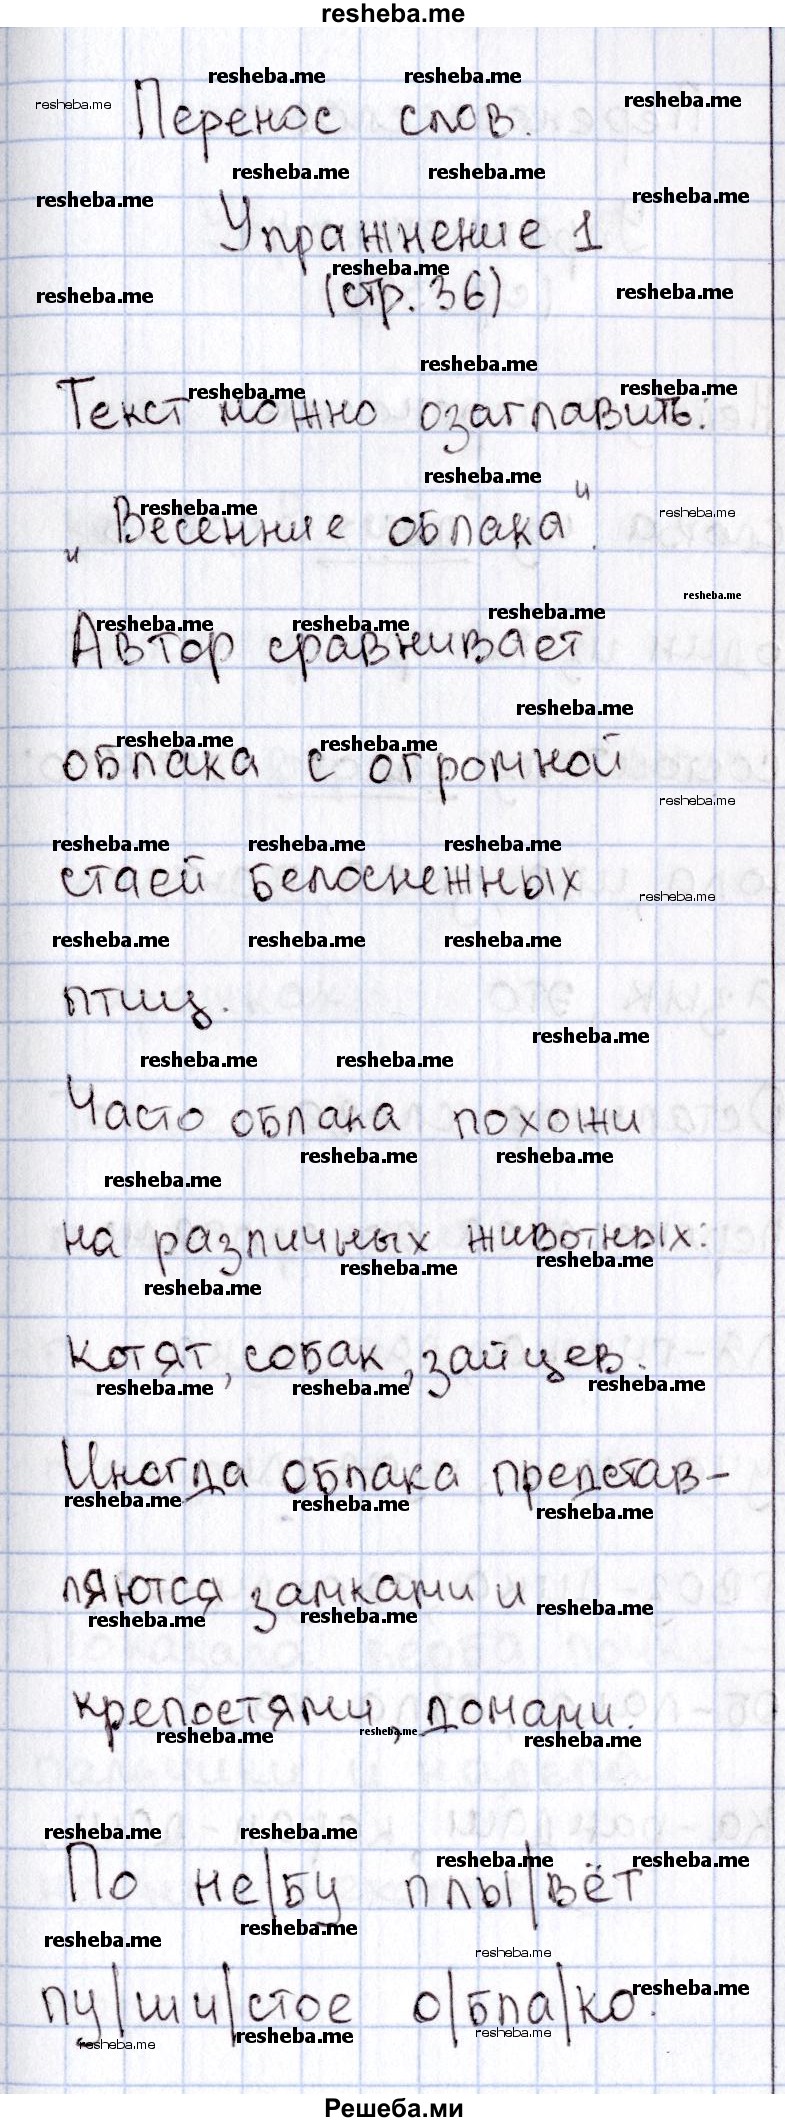 resheba.me
Перенос слов.
Упражнение 1
(стр. 36)
Текст можно озаглавить:
„Весенние облака".
Автор сравнивает
облака с огромной
стаей белоснежных
птиц.
Часто облака похожи
на различных животных:
котят, собак, зайцев.
Иногда облака представ-
ляются замками и
крепостями, домами.
По не/бу плы/вёт
пу/ши/стое о/бла/ко.
Решеба.ми